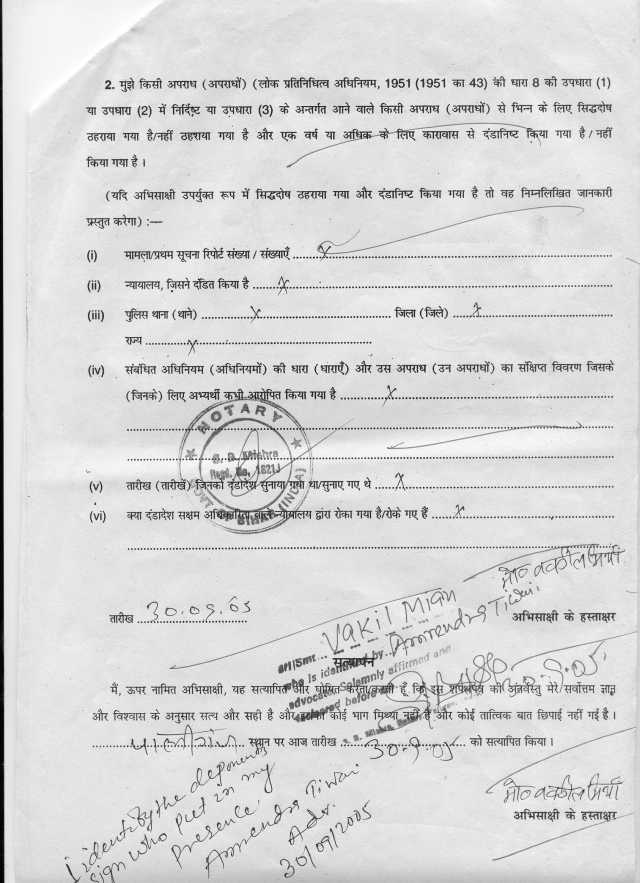 2. मुझे किसी अपराध (अपराधों) (लोक प्रतिनिधित्व अधिनियम, 1951 (1951 का 43) की धारा 8 की उपधारा (1)
या उपधारा (2) में निर्दिष्ट या उपधारा (3) के अन्तर्गत आने वाले किसी अपराध (अपराधों) से भिन्न के लिए सिद्धदोष
ठहराया गया है/नहीं ठहराया गया है और एक वर्ष या अधिक के लिए कारावास से दंडानिष्ट किया गया है / नहीं
किया गया है ।
(यदि अभिसाक्षी उपर्युक्त रूप में सिद्धदोष ठहराया गया और दंडानिष्ट किया गया है तो वह निम्नलिखित जानकारी
प्रस्तुत करेगा) :—
(i) मामला/प्रथम सूचना रिपोर्ट संख्या / संख्याएँ ........ X
(ii) न्यायालय, जिसने दंडित किया है ........ X
(iii) पुलिस थाना (थाने) ........ X ........ जिला (जिले) ........ X
राज्य ........ X
(iv) संबंधित अधिनियम (अधिनियमों) की धारा (धाराएँ) और उस अपराध (उन अपराधों) का संक्षिप्त विवरण जिसके
(जिनके) लिए अभ्यर्थी कभी आरोपित किया गया है ........ X
NOTARY
S. D. Mishra
Regd. No. 1621J
GOVT BIHAR (INDIA)
(v) तारीख (तारीखें) जिनको दंडादेश सुनाया गया था/सुनाए गए थे ........ X
(vi) क्या दंडादेश सक्षम अधिकारिता वाले न्यायालय द्वारा रोका गया है/रोके गए हैं ........ X
मो० वकील मियाँ
तारीख 30.09.05
अभिसाक्षी के हस्ताक्षर
Sri/Smt ... Vakil Mian
who is identified by Amrendra Tiwari
advocate Solemnly affirmed and
declared before
सत्यापन
30.9.05
मैं, ऊपर नामित अभिसाक्षी, यह सत्यापित और घोषित करता/करती हूँ कि इस शपथपत्र की अंतर्वस्तु मेरे सर्वोत्तम ज्ञान
और विश्वास के अनुसार सत्य और सही है और इसका कोई भाग मिथ्या नहीं है और कोई तात्विक बात छिपाई नहीं गई है ।
स्थान पर आज तारीख 30-9-05 को सत्यापित किया ।
मो० वकील मियाँ
अभिसाक्षी के हस्ताक्षर
I identify the deponent
sign who put in my
Presence.
Amrendra Tiwari
Adv.
30/09/2005